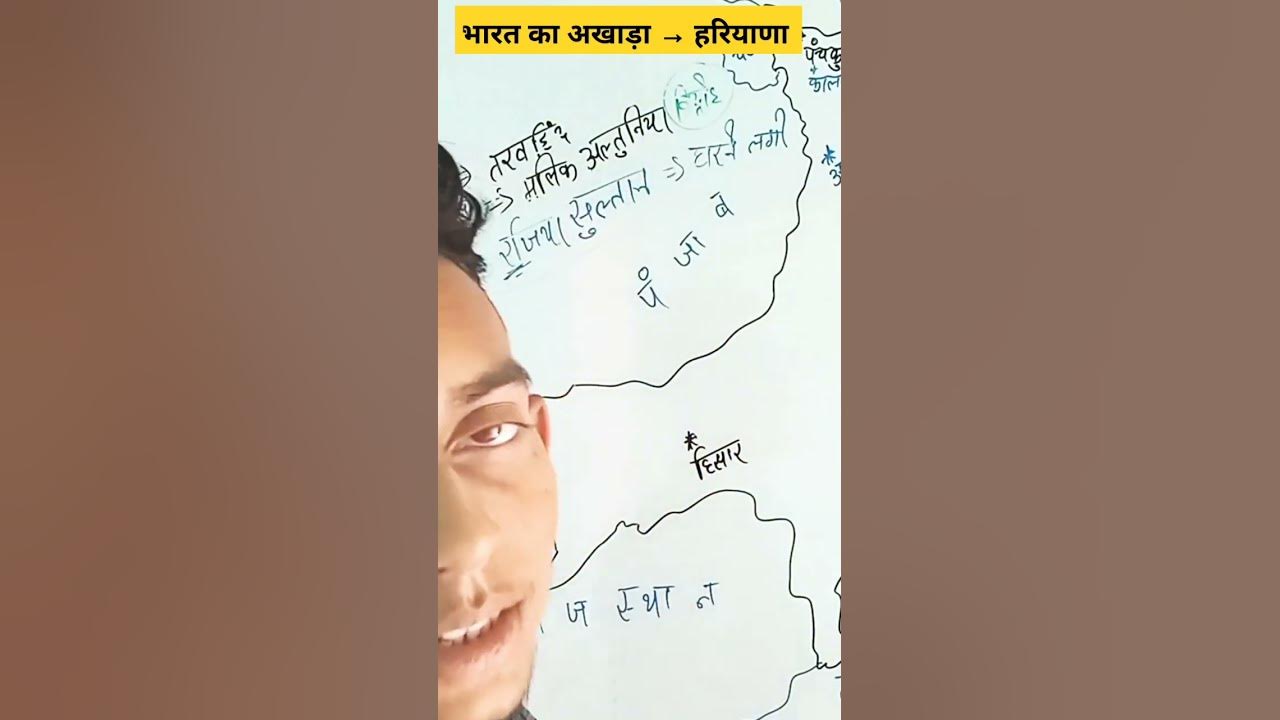 भारत का अखाड़ा → हरियाणा
पंचकु
काल
विद्रोह
तरवहिंद
=> मलिक अल्तुनिया
रजिया सुल्तान => हारने लगी
पं जा ब
* हिसार
ज स्था न